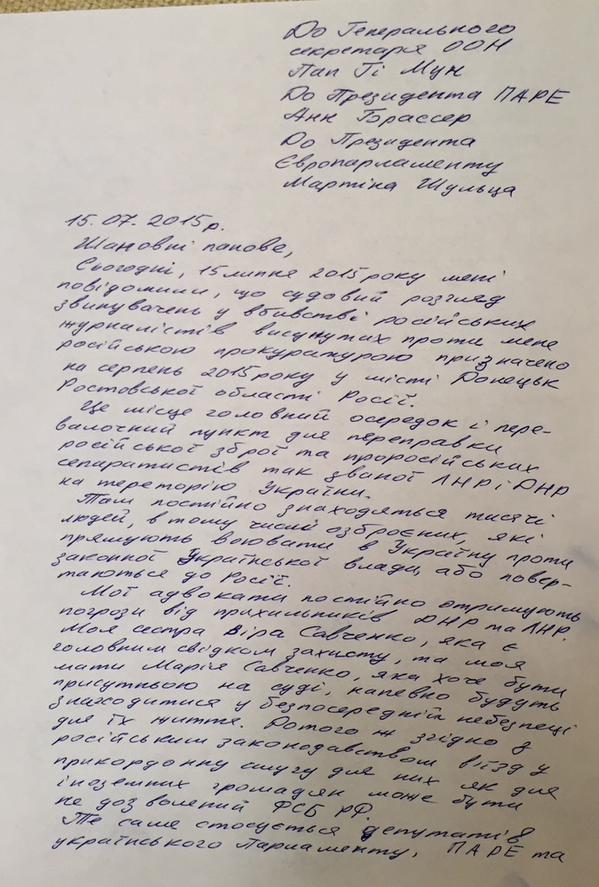 До Генерального
секретаря ООН
Пан Гі Мун
До Президента ПАРЕ
Анн Брассер
До Президента
Європарламенту
Мартіна Шульца
15.07.2015р.
Шановні панове,
Сьогодні, 15 липня 2015 року мені
повідомили, що судовий розгляд
звинувачень у вбивстві російських
журналістів висунутих проти мене
російською прокуратурою призначено
на серпень 2015 року у місті Донецьк
Ростовської області Росії.
Це місце головний осередок і пере-
валочний пункт для переправки
російської зброї та проросійських
сепаратистів так званої ЛНР і ДНР
на територію України.
Там постійно знаходяться тисячі
людей, в тому числі озброєних, які
прямують воювати в Україну проти
законної Української влади, або повер-
таються до Росії.
Мої адвокати постійно отримують
погрози від прихильників ДНР та ЛНР.
Моя сестра Віра Савченко, яка є
головним свідком захисту, та моя
мати Марія Савченко, яка хоче бути
присутньою на суді, напевно будуть
знаходитися у безпосередній небезпеці
для їх життя. Дотого ж згідно з
російським законодавством вїзд у
прикордонну смугу для них як для
іноземних громадян може бути
не дозволений ФСБ РФ.
Те саме стосується депутатів
українського Парламенту, ПАРЕ та